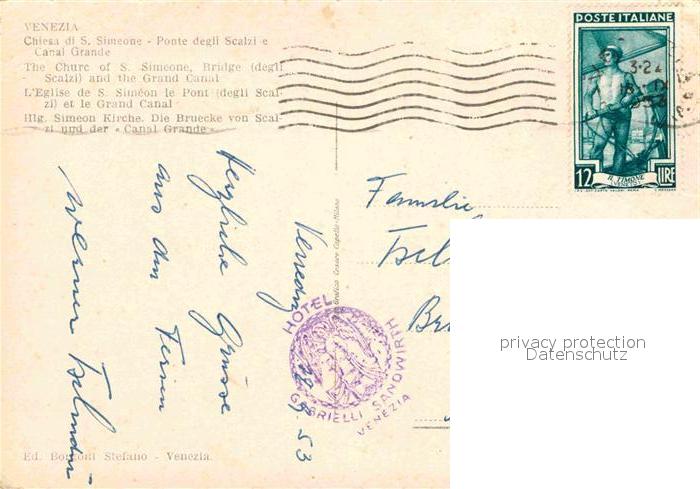 VENEZIA
Chiesa di S. Simeone - Ponte degli Scalzi e
Canal Grande
The Churc of S. Simeone, Bridge (degli
Scalzi) and the Grand Canal
L'Eglise de S. Siméon le Pont (degli Scal-
zi) et le Grand Canal
Hlg. Simeon Kirche. Die Bruecke von Scal-
zi und der « Canal Grande »
POSTE ITALIANE
IL TIMONE
12 LIRE
Familie
Venedig
53
Herzliche Grüsse
aus den Ferien
Werner
HOTEL
GABRIELLI SANDWIRTH
VENEZIA
Ed. Bortoni Stefano - Venezia.
privacy protection
Datenschutz